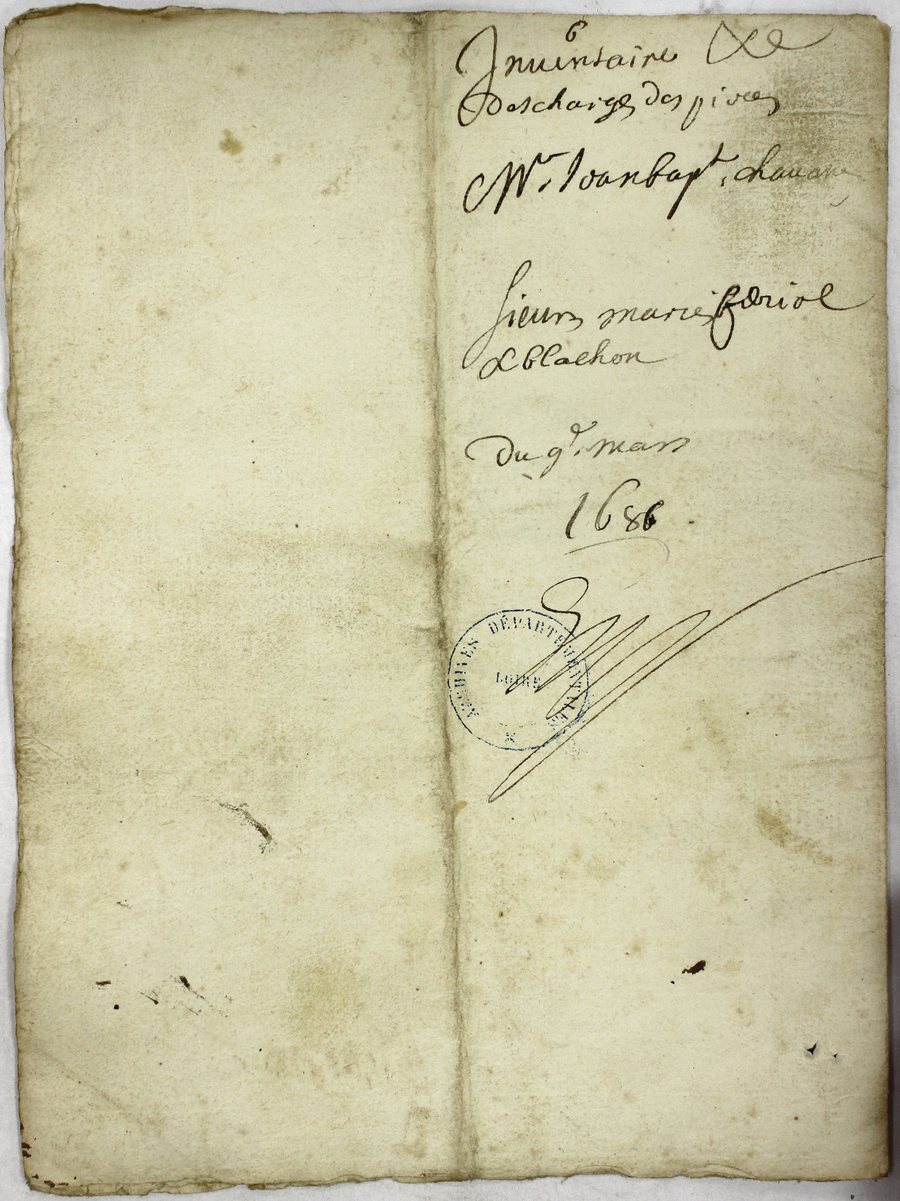 6
Inuentaire &
Descharges des pieces
Mr. Jean bapt. chauane
sieurs marie feriol
& blachon
Du 9e. mars
1686
ARCHIVES DÉPARTEMENTALES
LOIRE